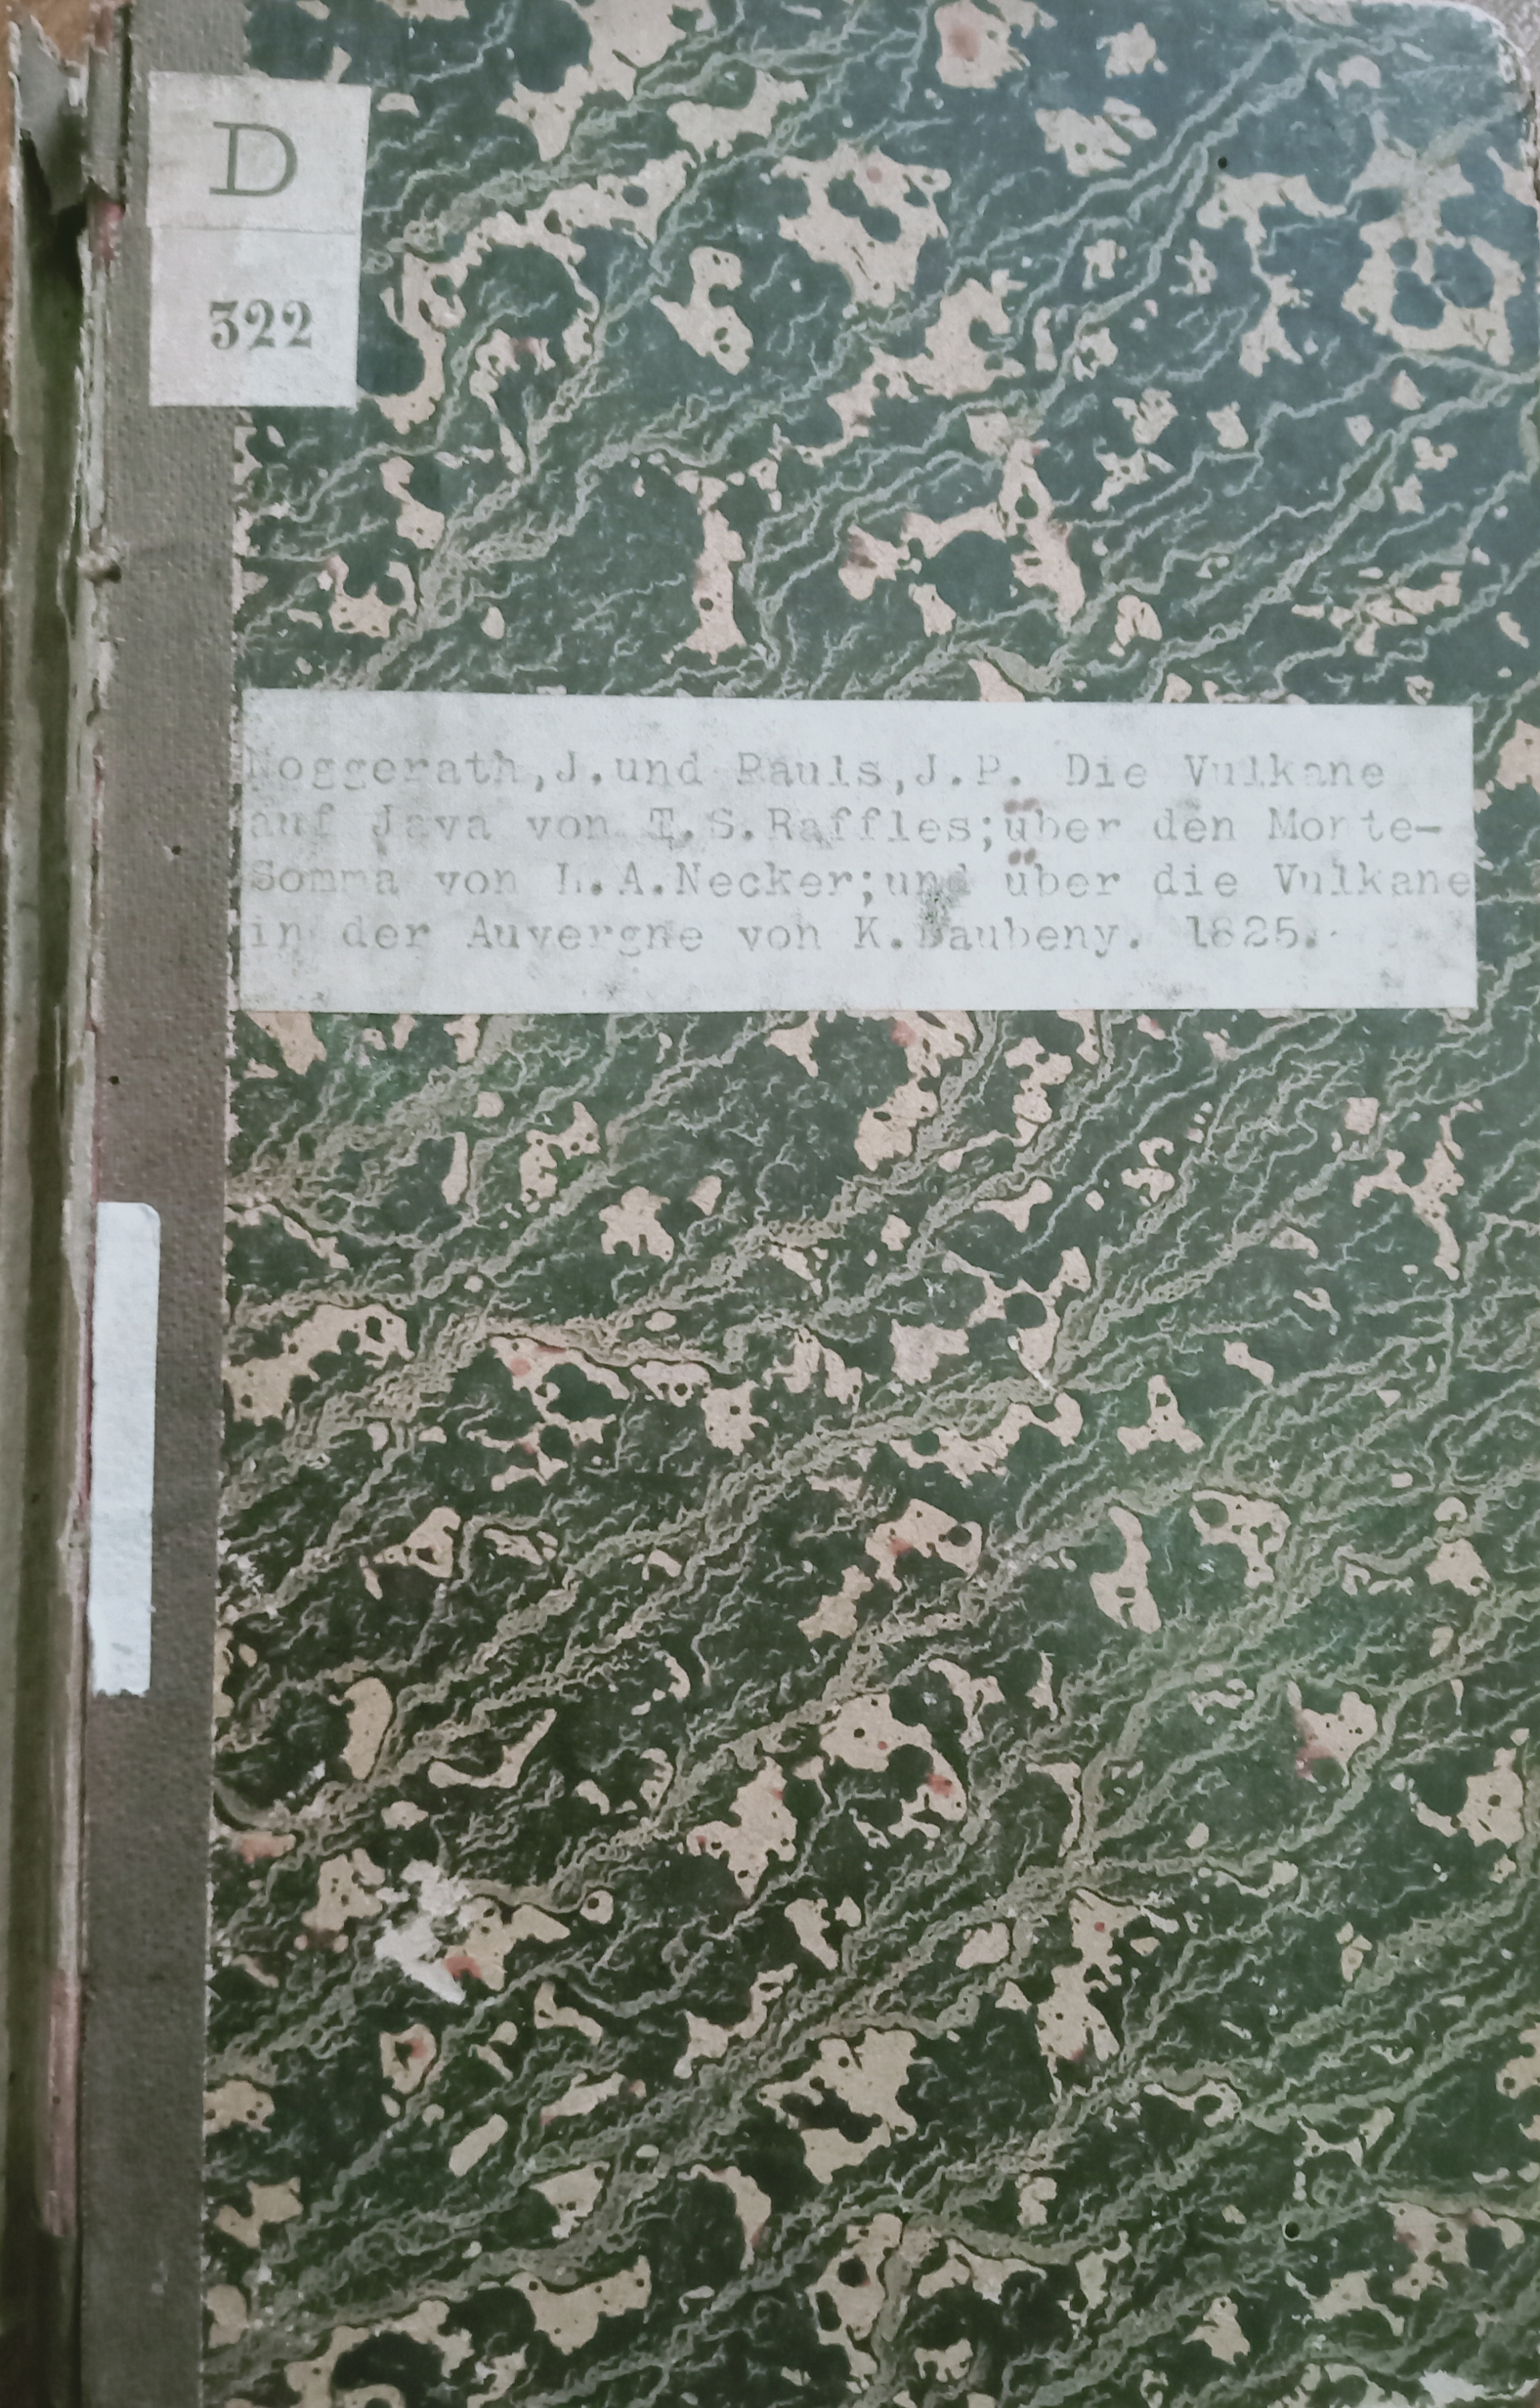 D
322
Noggerath,J.und Pauls,J.P. Die Vulkane
auf Java von T.S.Raffles;über den Monte-
Somma von L.A.Necker;und über die Vulkane
in der Auvergne von K.Daubeny. 1825.